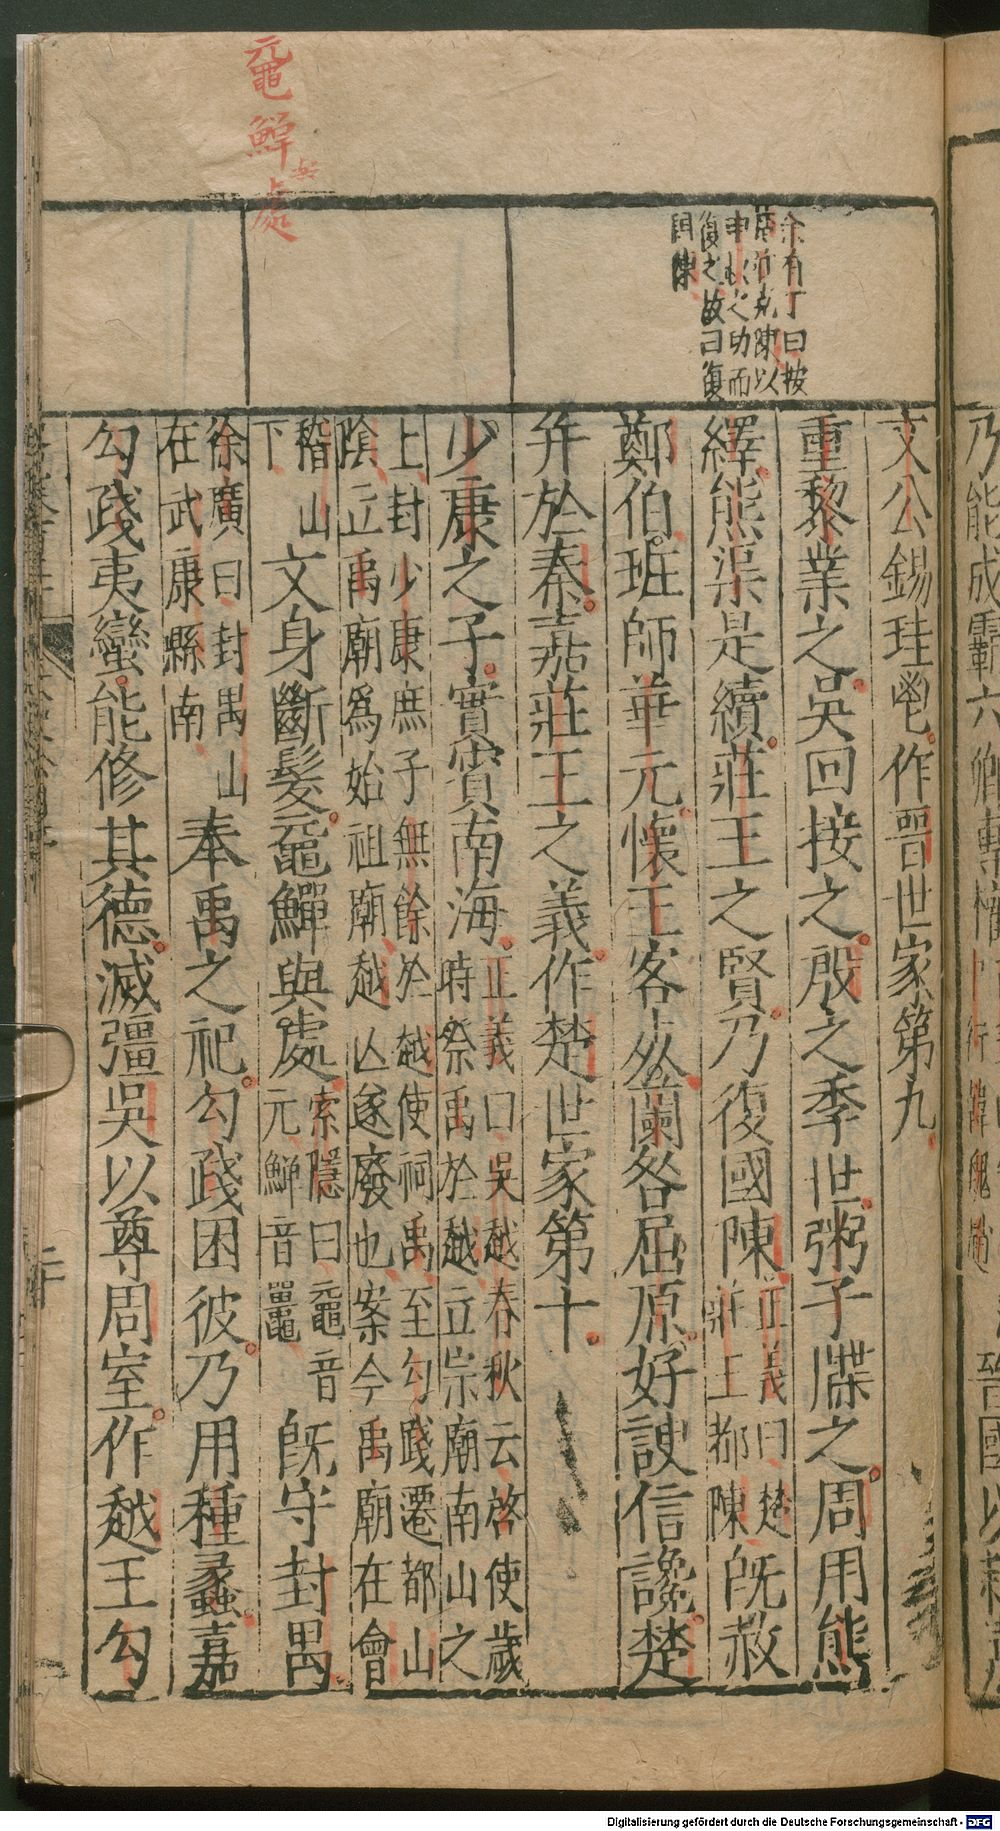 黿鱓
與
處
余有丁曰按
莊王克陳以
申叔之功而
復之故曰復
國陳
文公錫珪鬯作晉世家第九
重黎業之吳回接之殷之季世粥子牒之周用熊
繹熊渠是續莊王之賢乃復國陳
正義曰楚
莊王都陳
既赦
鄭伯班師華元懷王客死蘭咎屈原好諛信讒楚
并於秦嘉莊王之義作楚世家第十
少康之子實賓南海
正義曰吳越春秋云啓使歲
時祭禹於越立宗廟南山之
上封少康庶子無餘於越使祠禹至勾踐遷都山
陰立禹廟爲始祖廟越亾遂廢也案今禹廟在會
稽山
下
文身斷髮黿鱓與處
索隱曰黿音
元鱓音鼉
既守封禺
徐廣曰封禺山
在武康縣南
奉禹之祀勾踐困彼乃用種蠡嘉
勾踐夷蠻能修其德滅彊吳以尊周室作越王勾
乃能成霸六卿專權
晉國以
Digitalisierung gefördert durch die Deutsche Forschungsgemeinschaft - DFG